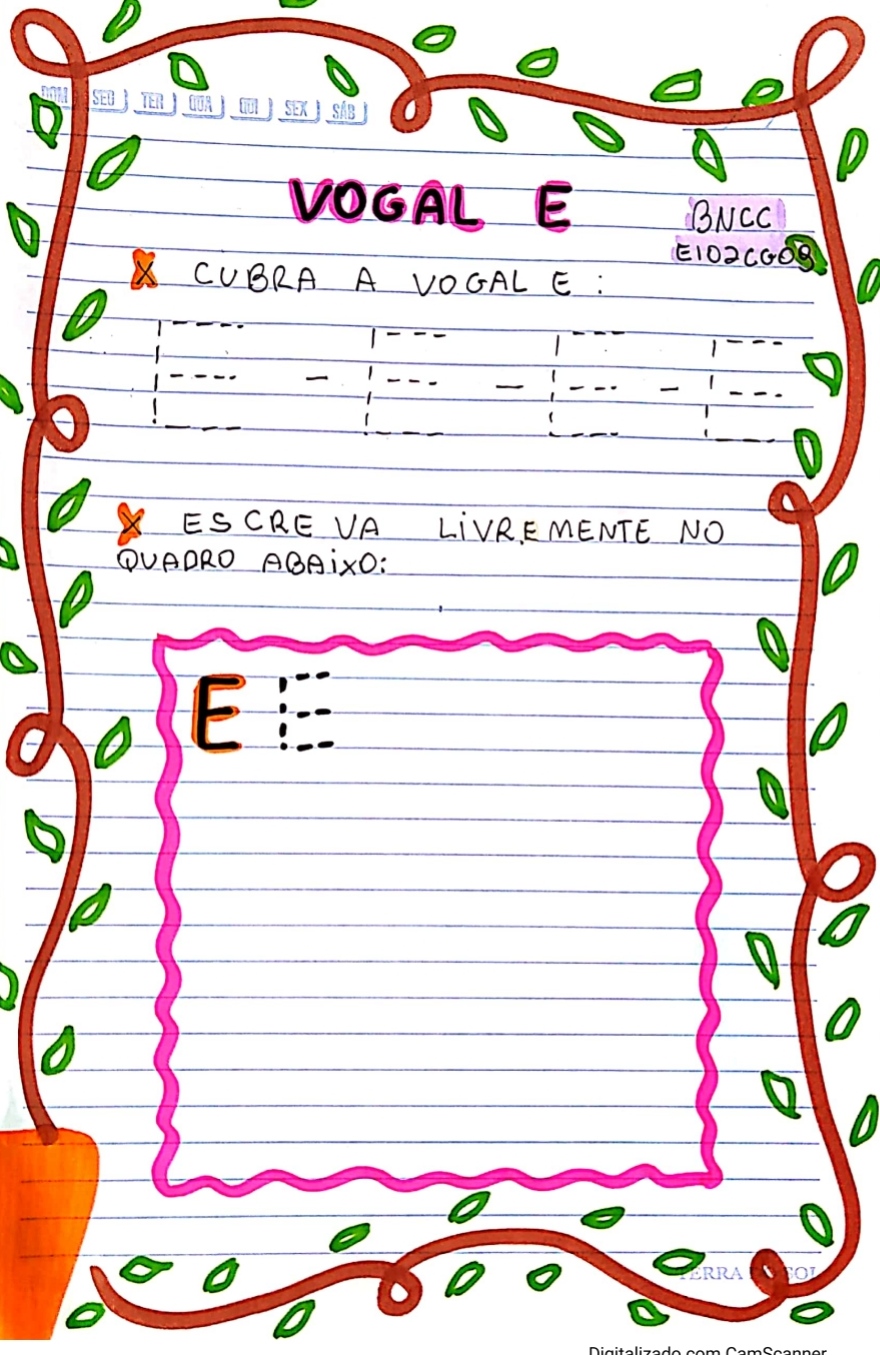 DOM SEG TER QUA QUI SEX SÁB
VOGAL E
BNCC
EI02CG09
X CUBRA A VOGAL E :
E - E - E - E
X ESCREVA LIVREMENTE NO
QUADRO ABAIXO:
E E
TERRA DO SOL
Digitalizado com CamScanner